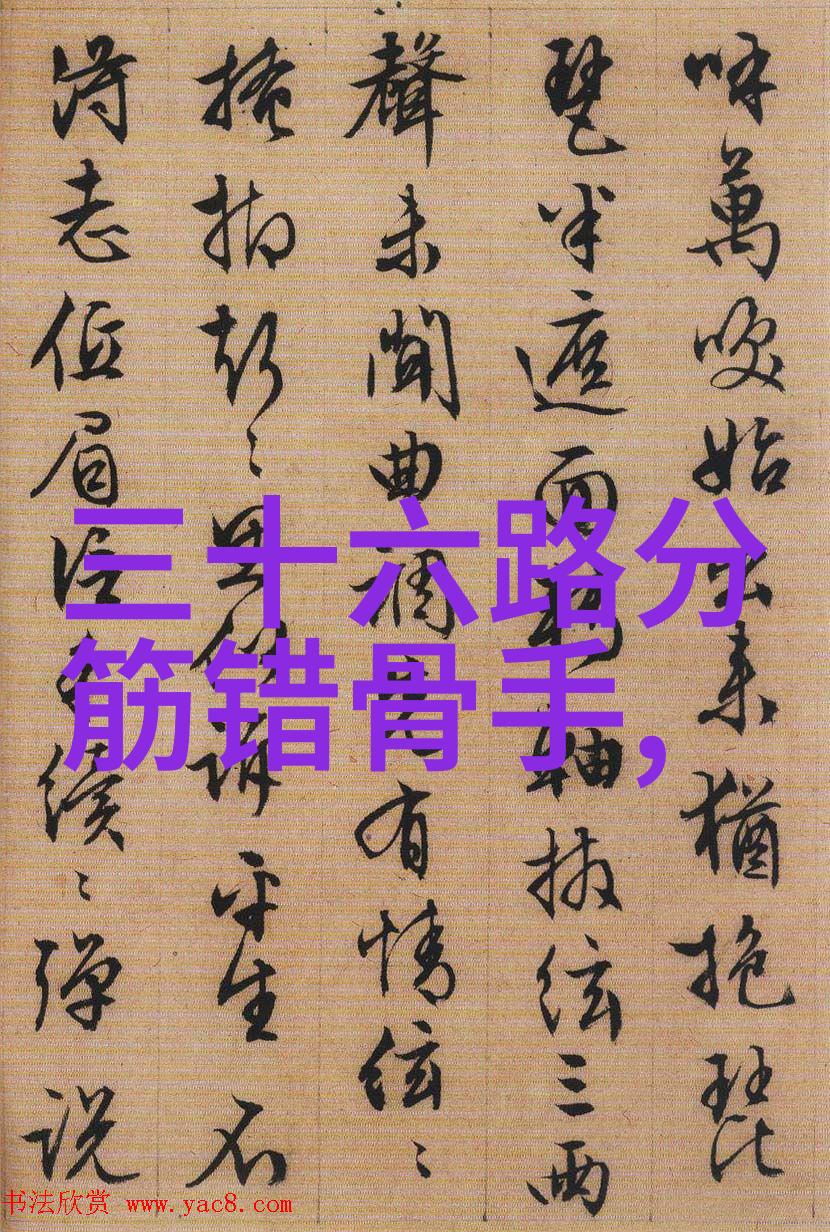 呼萬喚始出来猶抱琵
琶半遮面轉軸撥絃三兩
聲未聞曲調先有情絃〻
掩抑聲〻思似訴平生不
得志低眉信手續〻彈説
三十六路分
筋错骨手,
书法欣赏 www.yac8.com